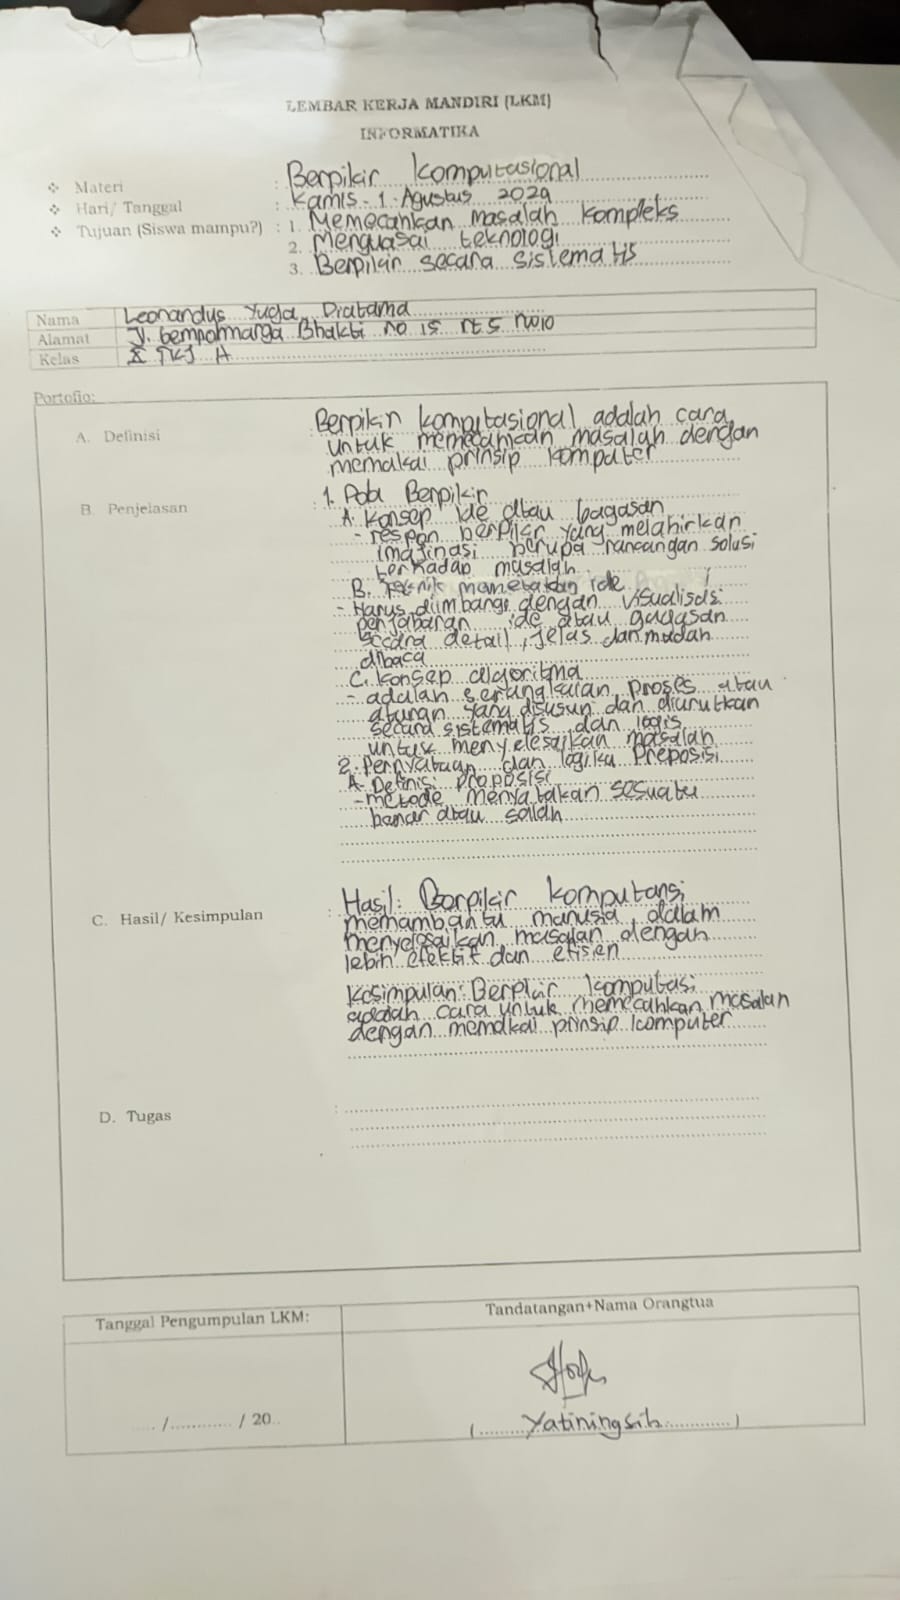 LEMBAR KERJA MANDIRI (LKM)
INFORMATIKA
❖ Materi : Berpikir Komputasional
❖ Hari/ Tanggal : Kamis - 1 - Agustus 2029
❖ Tujuan (Siswa mampu?) : 1. Memecahkan masalah Kompleks
2. Menguasai teknologi
3. Berpikir secara sistematis
Nama Leonandus Yuda Diatama
Alamat Jl. bempolmarga Bhakti no 15 rt 5 rw010
Kelas X TKJ A
Portofio:
A. Definisi Berpikir komputasional adalah cara
untuk memecahkan masalah dengan
memakai prinsip komputer
B. Penjelasan : 1. Pola Berpikir
A. Konsep ide atau bagasan
- respon berpikir yang melahirkan
imajinasi berupa rancangan solusi
terhadap masalah
B. Teknik memetakan ide
- Harus diimbangi dengan visualisasi
penjabaran ide atau gagasan
secara detail, jelas dan mudah
dibaca
C. konsep algoritma
- adalah serangkaian proses atau
aturan yang disusun dan diurutkan
secara sistematis dan logis
untuk menyelesaikan masalah
2. Pernyataan dan logika Preposisi
A. Definisi proposisi
- metode menyatakan sesuatu
benar atau salah
C. Hasil/ Kesimpulan : Hasil: Berpikir komputansi
memambantu manusia dalam
menyelesaikan masalah dengan
lebih efektif dan efisien
Kesimpulan: Berpikir komputasi
adalah cara untuk memecahkan masalah
dengan memakai prinsip komputer
D. Tugas :
Tanggal Pengumpulan LKM: Tandatangan+Nama Orangtua
..... /............ / 20..
(.........Yatiningsih............)